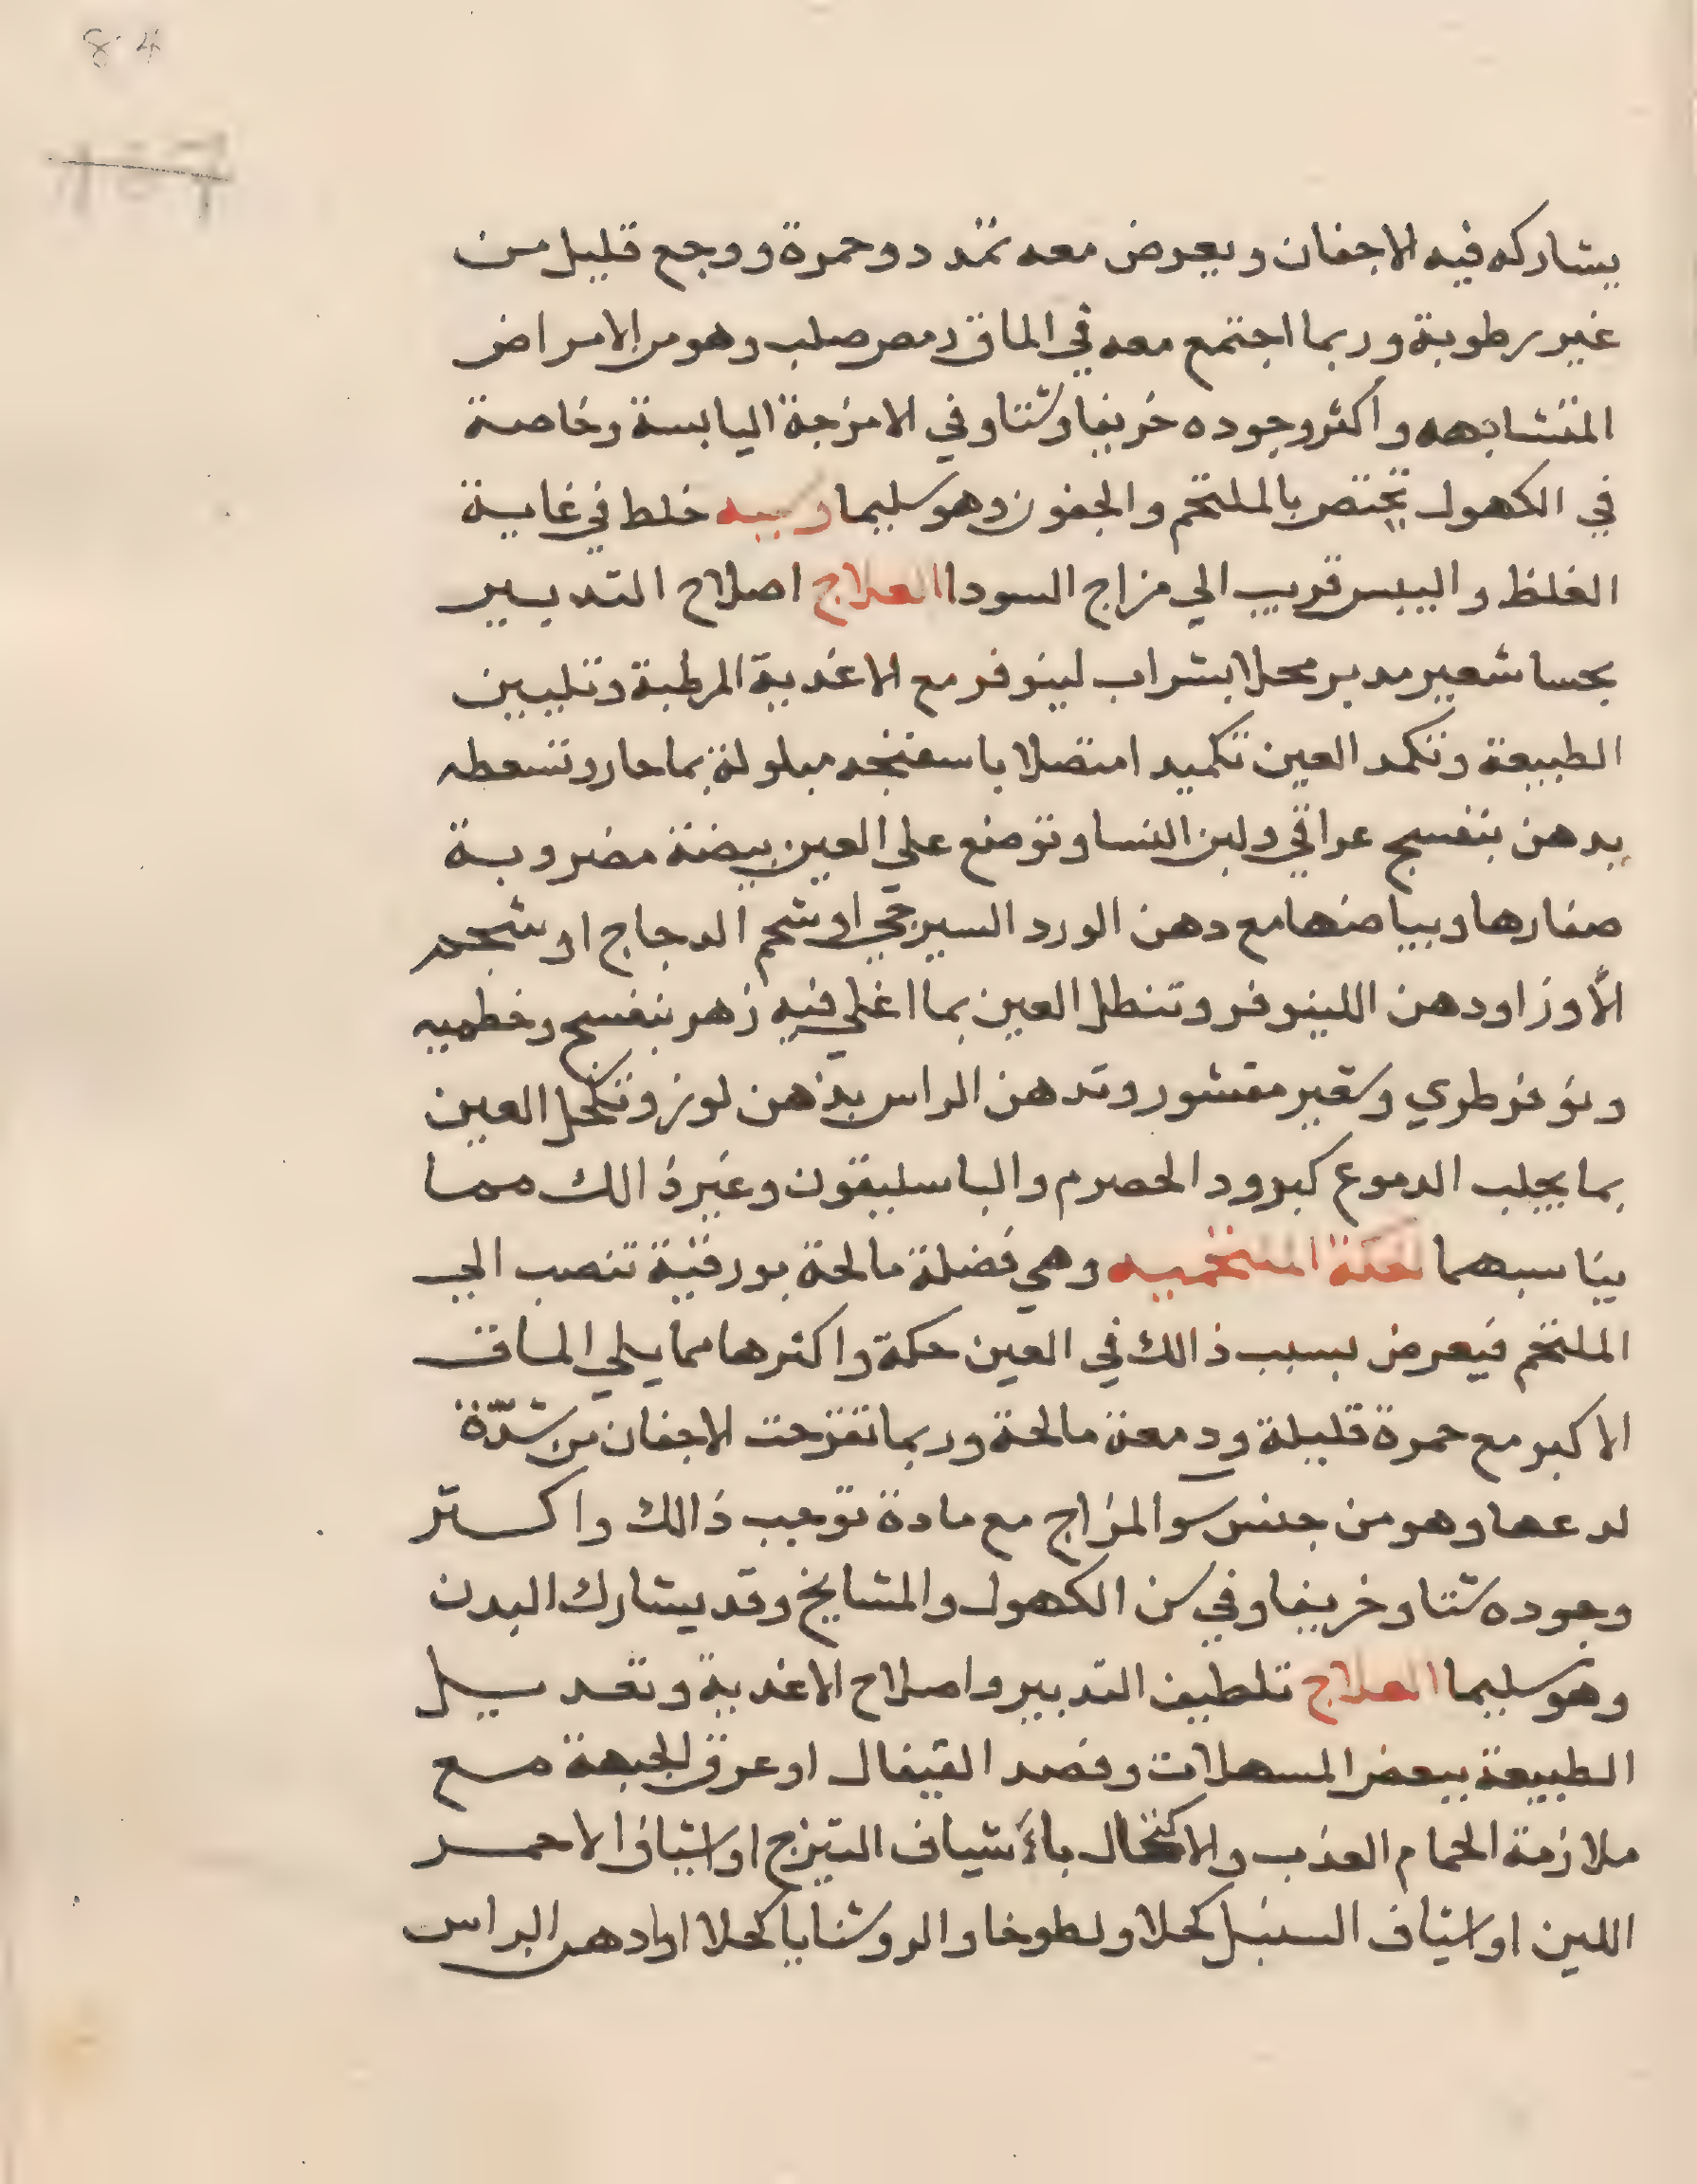 8.4
يشاركه فيه الاجفان ويعرض معه تمدد وحمرة ووجع قليل من
غير رطوبة وربما اجتمع معه في الماق رمص صلب وهو من الامراض
المتشابهه واكثر وجوده خريفا وشتا وفي الامزجة اليابسة وخاصة
في الكهول تختص بالملتحم والجفون وهو سليما وسببه خلط في غاية
الغلظ واليبس قريب الي مزاج السودا العلاج اصلاح التدبير
بحسا شعير مدبر محلا بشراب لينوفر مع الاغدية المرطبة وتليين
الطبيعة وتكمد العين تكميد امتصلا باسفنجه مبلولة بما حار وتسعطه
بدهن بنفسج عراقي ولبن النسا وتوضع علي العين بيضة مضروبة
صفارها وبياضها مع دهن الورد السيرجي او شحم الدجاج او شحم
الأوز او دهن اللينوفر وتنطل العين بما اغلي فيه زهر بنفسج وخطميه
ونوفر طري وشعير مقشور وتدهن الراس بدهن لوز وتكحل العين
بما يجلب الدموع كبرود الحصرم والباسليقون وغير ذالك مما
يناسبهما الحكة الملتحميه وهي فضلة مالحة بورقية تنصب الي
الملتحم فيعرض بسبب ذالك في العين حكة واكثرها مما يلي الماق
الاكبر مع حمرة قليلة ودمعة مالحة وربما تقرحت الاجفان من شدّة
لدعها وهو من جنس سو المزاج مع مادة توجب ذالك واكتر
وجوده شتا وخريفا وفي سن الكهول والمشايخ وقد يشارك البدن
وهو سليما العلاج تلطيف التدبير واصلاح الاغدية وتعديل
الطبيعة ببعض المسهلات وفصد القيفال او عرق الجبهة مع
ملازمة الحمام العذب والاكتحال باأشياف التيزج او اشياف الاحمر
اللين او اشياف السنبل كحلا ولطوخا والروشنايا كحلا او ادهن الراس